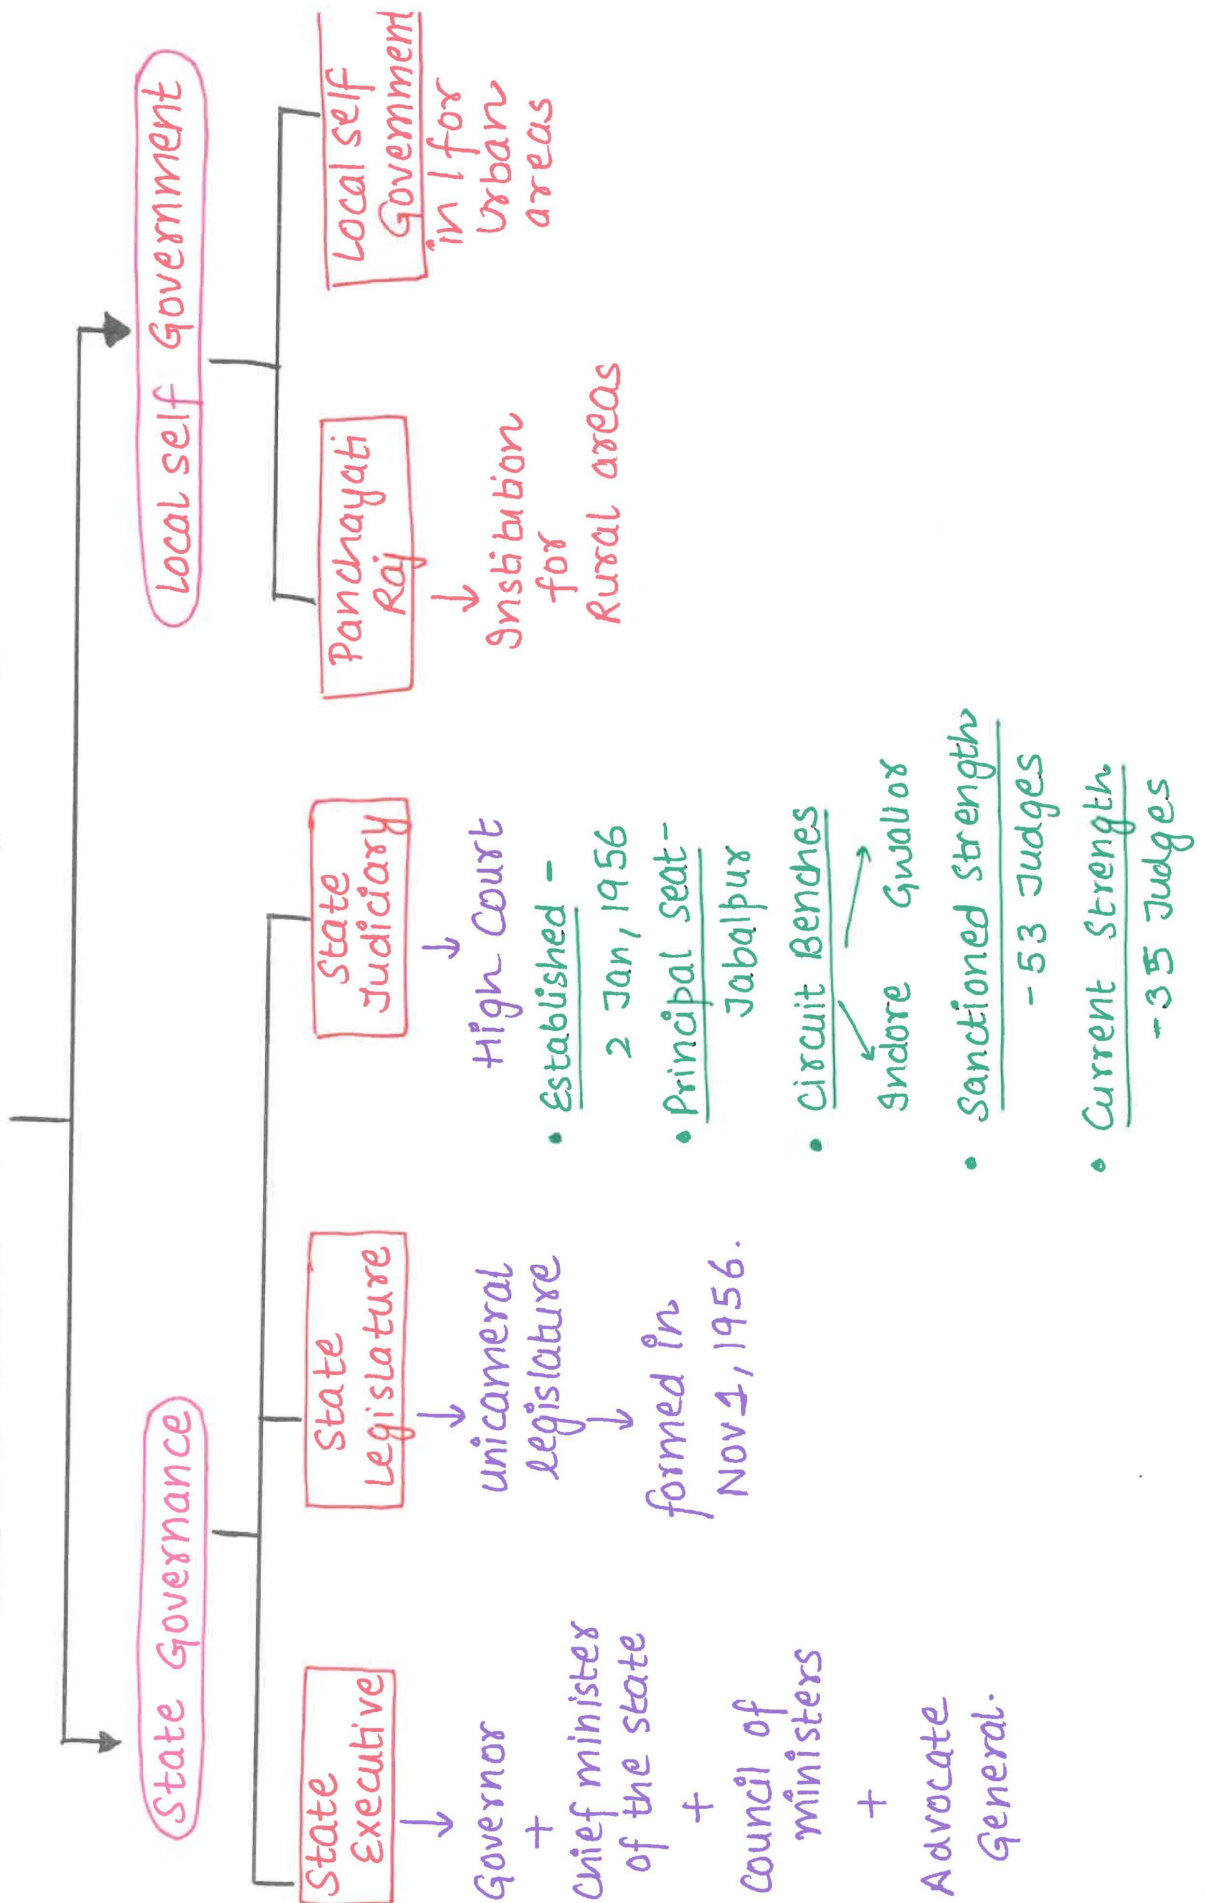 State Governance
State
Executive
Governor
+
Chief minister
of the state
+
Council of
ministers
+
Advocate
General.
State
Legislature
unicameral
legislature
formed in
Nov 1, 1956.
State
Judiciary
High Court
• Established -
2 Jan, 1956
• Principal seat-
Jabalpur
• Circuit Benches
Indore Gwalior
• Sanctioned Strength
-53 Judges
• Current Strength
-35 Judges
Local self Government
Panchayati
Raj
Institution
for
Rural areas
Local self
Government
in 1 for
Urban
areas